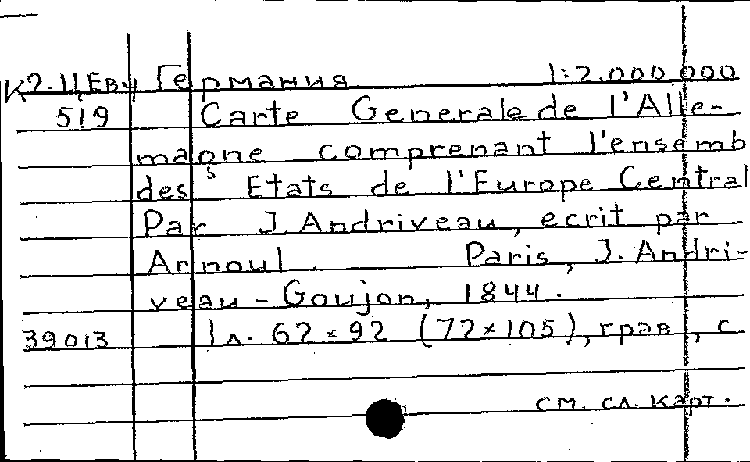 К2.ЦЕв.4 Германия 1:2.000 000
519 Carte Generale de l'Alle-
magne comprenant l'ensemb
des Etats de l'Europe Central
Par J. Andriveau, ecrit par
Arnoul. Paris, J. Andri-
veau-Goujon, 1844.
39013 1 л. 62×92 (72×105), грав., с
см. сл. карт.